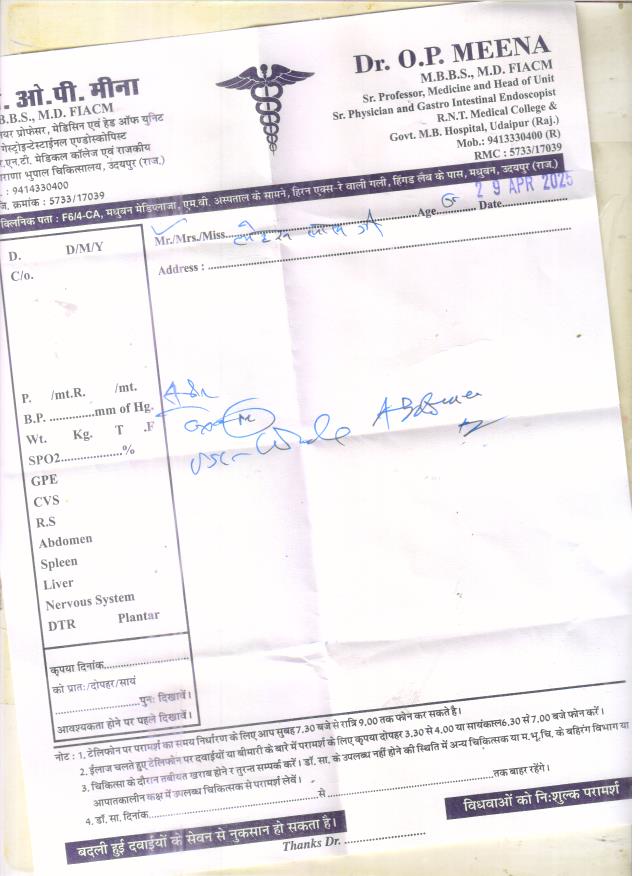 . ओ.पी. मीना
B.B.S., M.D. FIACM
यर प्रोफेसर, मेडिसिन एवं हेड ऑफ यूनिट
गेस्ट्रोइन्टेस्टाईनल एण्डोस्कोपिस्ट
.एन.टी. मेडिकल कॉलेज एवं राजकीय
राणा भूपाल चिकित्सालय, उदयपुर (राज.)
. : 9414330400
जि. क्रमांक : 5733/17039
Dr. O.P. MEENA
M.B.B.S., M.D. FIACM
Sr. Professor, Medicine and Head of Unit
Sr. Physician and Gastro Intestinal Endoscopist
R.N.T. Medical College &
Govt. M.B. Hospital, Udaipur (Raj.)
Mob.: 9413330400 (R)
RMC : 5733/17039
क्लिनिक पता : F6/4-CA, मधुबन मेडिप्लाजा, एम.बी. अस्पताल के सामने, हिरन एक्स-रे वाली गली, हिंगड लैब के पास, मधुबन, उदयपुर (राज.)
Mr./Mrs./Miss. Age Date 29 APR 2025
Address :
D. D/M/Y
C/o.
P. /mt.R. /mt.
B.P. ..............mm of Hg.
Wt. Kg. T .F
SPO2....................%
GPE
CVS
R.S
Abdomen
Spleen
Liver
Nervous System
DTR Plantar
Adv
USG - Whole Abdomen
कृपया दिनांक
को प्रातः/दोपहर/सायं
पुनः दिखावें।
आवश्यकता होने पर पहले दिखावें।
नोट : 1. टेलिफोन पर परामर्श का समय निर्धारण के लिए आप सुबह 7.30 बजे से रात्रि 9.00 तक फोन कर सकते है।
2. ईलाज चलते हुए टेलिफोन पर दवाईयों या बीमारी के बारे में परामर्श के लिए कृपया दोपहर 3.30 से 4.00 या सायंकाल 6.30 से 7.00 बजे फोन करें।
3. चिकित्सा के दौरान तबीयत खराब होने र तुरन्त सम्पर्क करें। डॉ. सा. के उपलब्ध नहीं होने की स्थिति में अन्य चिकित्सक या म.भू.चि. के बहिरंग विभाग या
आपातकालीन कक्ष में उपलब्ध चिकित्सक से परामर्श लेवें।
4. डॉ. सा. दिनांक से तक बाहर रहेंगे।
बदली हुई दवाईयों के सेवन से नुकसान हो सकता है।
विधवाओं को निःशुल्क परामर्श
Thanks Dr.